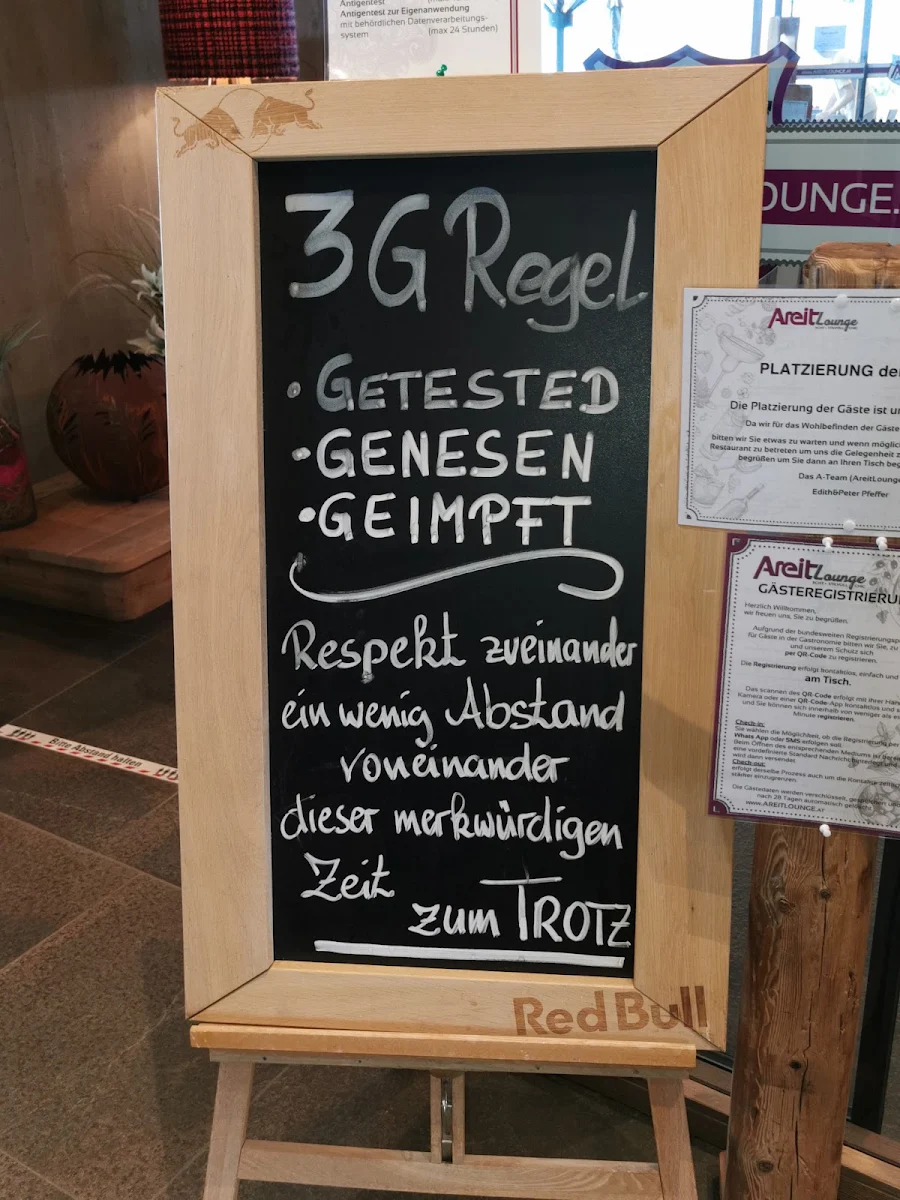 Antigentest
Antigentest zur Eigenanwendung
mit behördlichen Datenverarbeitungs-
system (max 24 Stunden)
3G Regel
• GETESTED
• GENESEN
• GEIMPFT
Respekt zueinander
ein wenig Abstand
voneinander
dieser merkwürdigen
Zeit
zum TROTZ
Red Bull
Bitte Abstand halten
OUNGE.
Areit Lounge
PLATZIERUNG de
Die Platzierung der Gäste ist
Da wir für das Wohlbefinden der Gäste
bitten wir Sie etwas zu warten und wenn möglic
Restaurant zu betreten um uns die Gelegenheit z
begrüßen um Sie dann an Ihren Tisch
Das A-Team (AreitLounge
Edith&Peter Pfeffer
Areit Lounge
GÄSTEREGISTRIERU
Herzlich Willkommen,
wir freuen uns, Sie zu begrüßen.
Aufgrund der bundesweiten Registrierungsp
für Gäste in der Gastronomie bitten wir Sie, zu
und unserem Schutz sich
per QR-Code zu registrieren.
Die Registrierung erfolgt kontaktlos, einfach und
am Tisch.
Das scannen des QR-Code erfolgt mit ihrer Han
Kamera oder einer QR-Code-App kontaktlos und
und Sie können sich innerhalb von weniger als
Minute registrieren.
Check-in:
Sie wählen die Möglichkeit, ob die Registrierung per
Whats App oder SMS erfolgen soll.
Beim Öffnen des entsprechenden Mediums ist bereits
eine vordefinierte Standard Nachricht
wird dann versendet.
Check-out:
erfolgt derselbe Prozess auch um die Kontakte
stärker einzugrenzen.
Die Gästedaten werden verschlüsselt, gespeichert
nach 28 Tagen automatisch gelöscht
www.AREITLOUNGE.AT